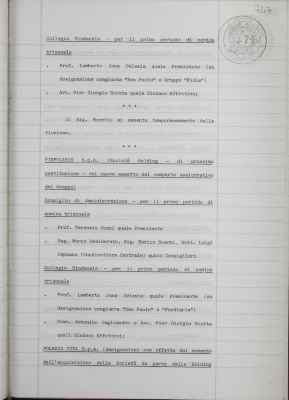 747
Collegio Sindacale - per il primo periodo di nomina
triennale
. Prof. Lamberto Jona Celesia quale Presidente (su
designazione congiunta "San Paolo" e Gruppo
. Avv. Pier Giorgio Scotta quale Sindaco Effettivo;
* * *
Il Sig. Moretti si assenta temporaneamente dalla
riunione.
* * *
FINPOLARIS S.p.A. (Società Holding - di prossima
costituzione - del nuovo assetto del comparto assicurativo
del Gruppo)
Consiglio di Amministrazione - per il primo periodo di
nomina triennale
. Prof. Terenzio Cozzi quale Presidente
. Rag. Marco Desiderato, Sig. Enrico Scerni, Dott. Luigi
Capuano (Condirettore Centrale) quali Consiglieri
Collegio Sindacale - per il primo periodo di nomina
triennale
. Prof. Lamberto Jona Celesia quale Presidente (su
designazione congiunta "San Paolo" e "Fondiaria")
. Comm. Antonino Cagliandro e Avv. Pier Giorgio Scotta
quali Sindaci Effettivi;
POLARIS VITA S.p.A. (designazioni con effetto dal momento
dell'acquisizione della Società da parte della Holding